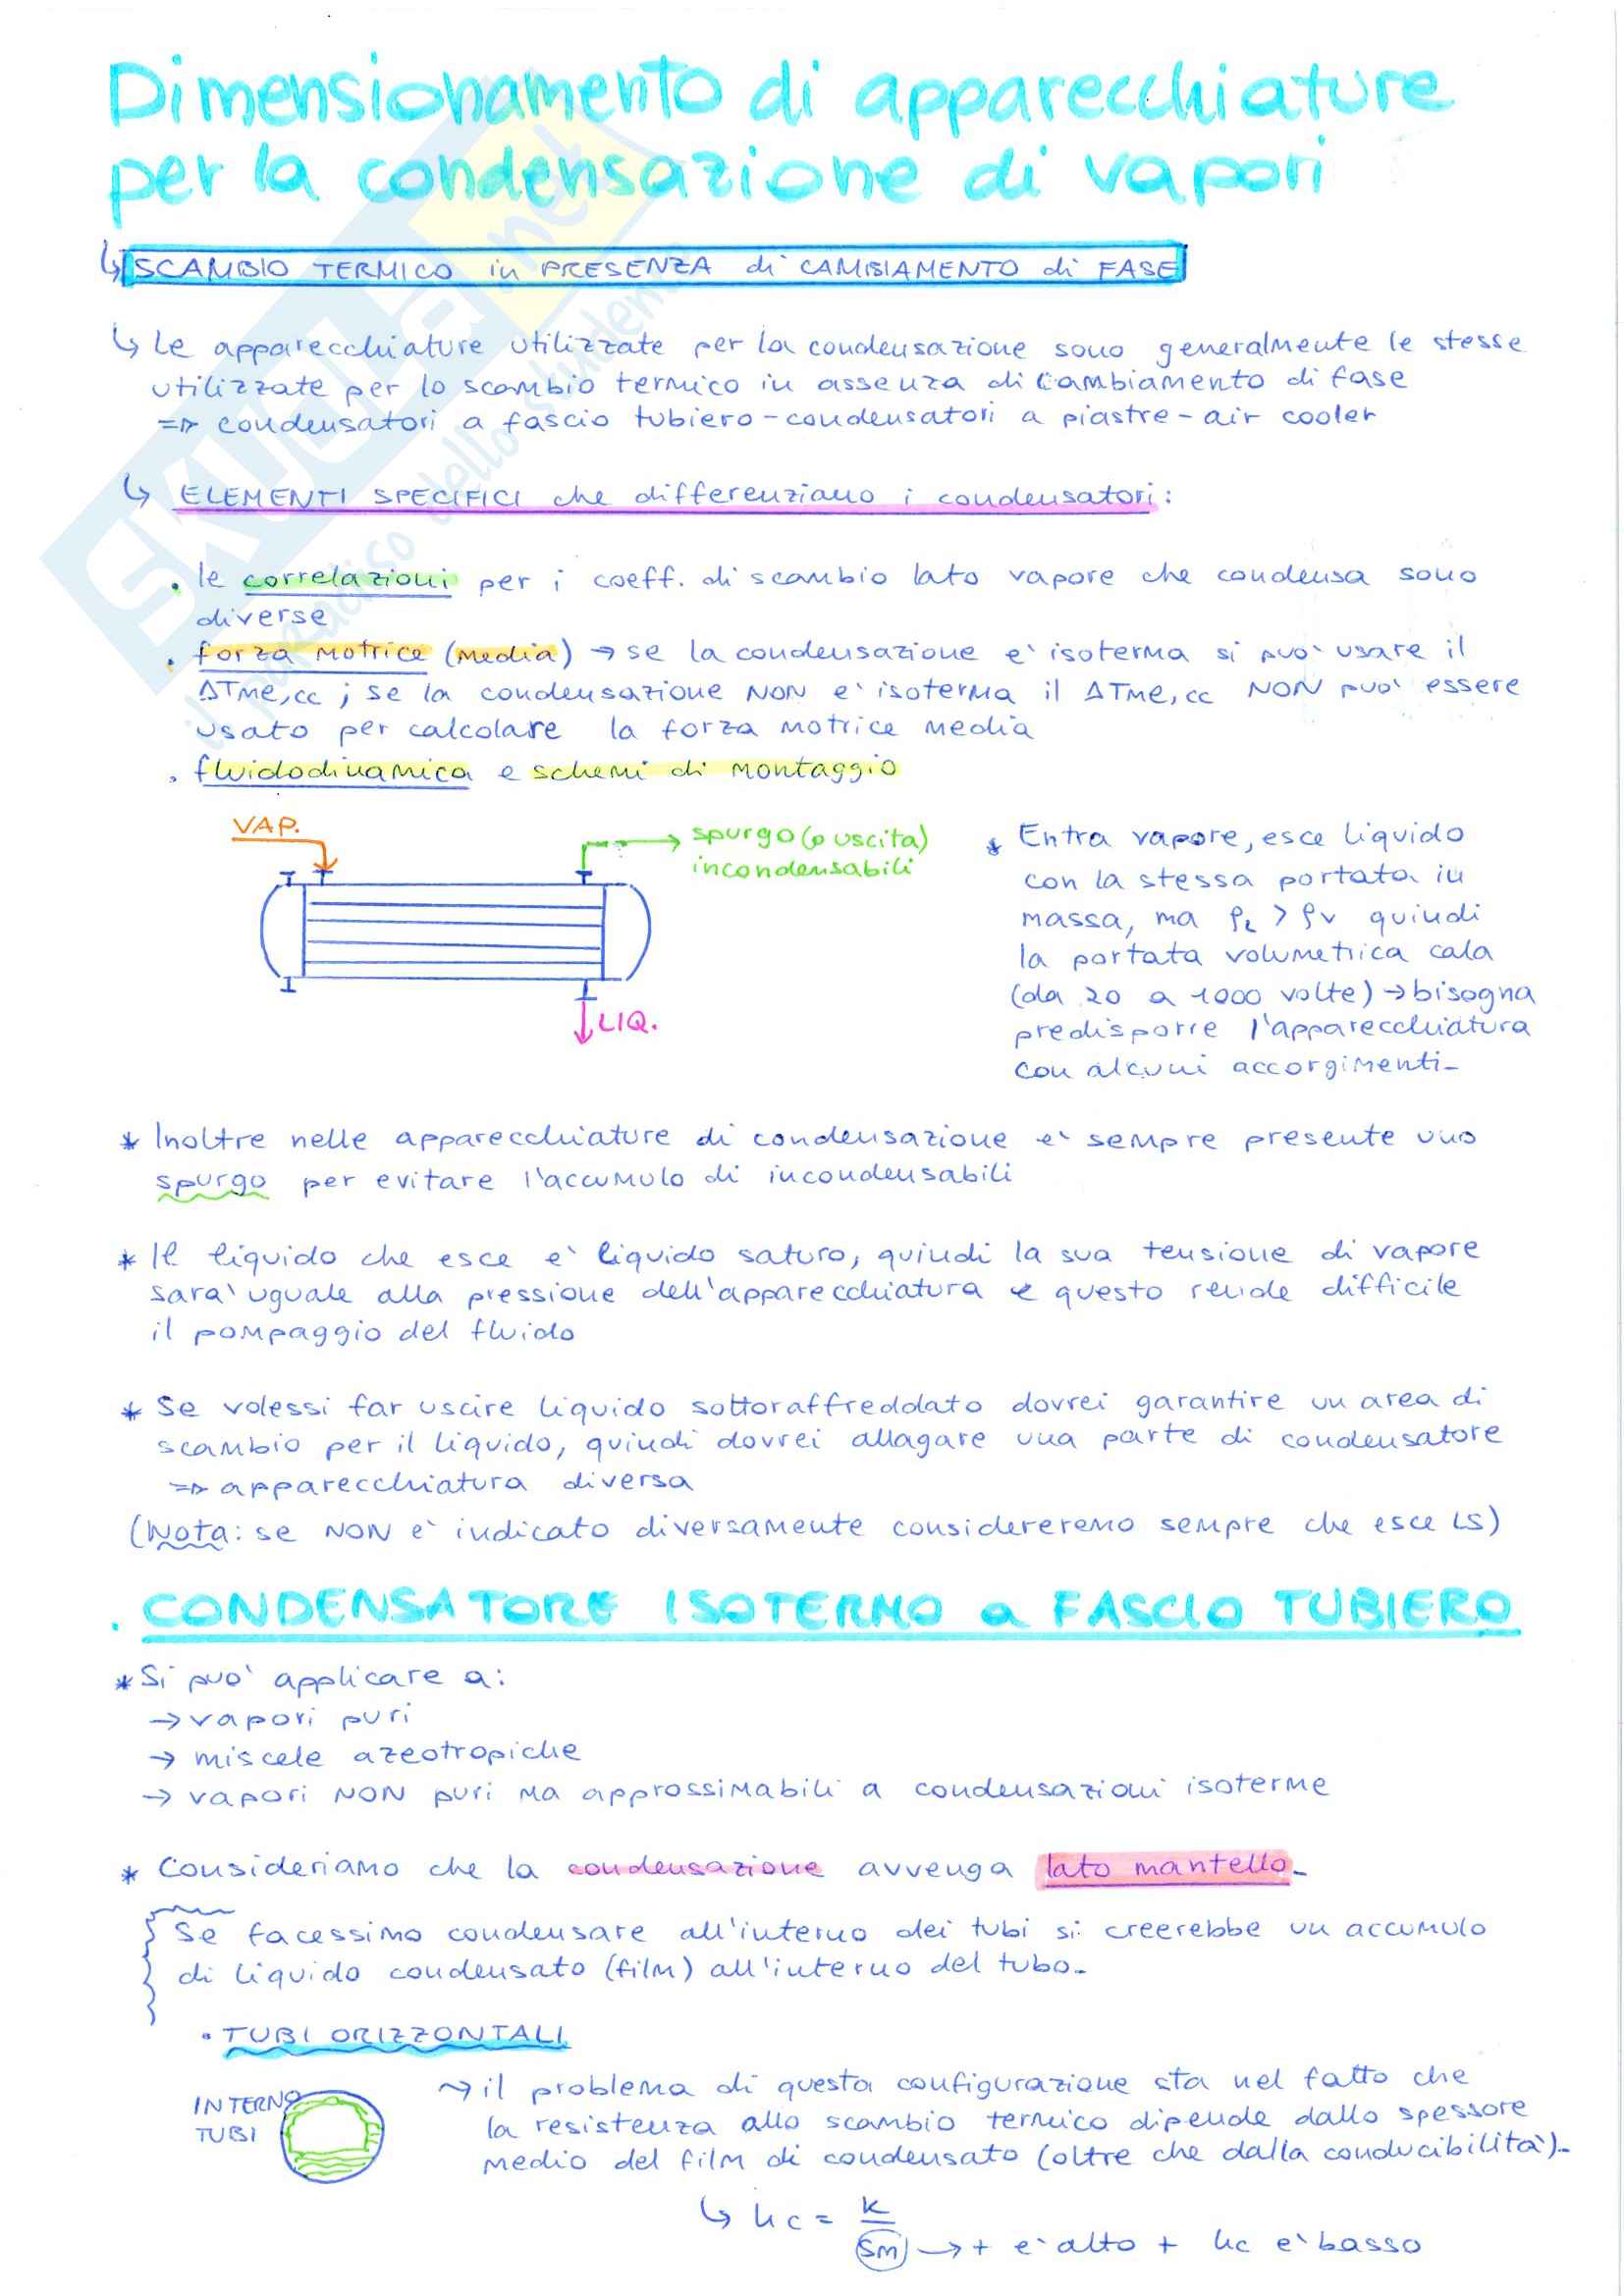 Dimensionamento di apparecchiature
per la condensazione di vapori
↳ SCAMBIO TERMICO in PRESENZA di CAMBIAMENTO di FASE
↳ Le apparecchiature utilizzate per la condensazione sono generalmente le stesse
utilizzate per lo scambio termico in assenza di cambiamento di fase
=> condensatori a fascio tubiero - condensatori a piastre - air cooler
↳ ELEMENTI SPECIFICI che differenziano i condensatori:
• le correlazioni per i coeff. di scambio lato vapore che condensa sono
diverse
• forza motrice (media) → se la condensazione e' isoterma si puo' usare il
ΔTme,cc ; se la condensazione NON e' isoterma il ΔTme,cc NON puo' essere
usato per calcolare la forza motrice media
• fluidodinamica e schemi di montaggio
VAP.
spurgo (o uscita)
incondensabili
LIQ.
* Entra vapore, esce liquido
con la stessa portata in
massa, ma ρL > ρv quindi
la portata volumetrica cala
(da 20 a 1000 volte) → bisogna
predisporre l'apparecchiatura
con alcuni accorgimenti-
* Inoltre nelle apparecchiature di condensazione e' sempre presente uno
spurgo per evitare l'accumulo di incondensabili
* Il liquido che esce e' liquido saturo, quindi la sua tensione di vapore
sara' uguale alla pressione dell'apparecchiatura e questo rende difficile
il pompaggio del fluido
* Se volessi far uscire liquido sottoraffreddato dovrei garantire un area di
scambio per il liquido, quindi dovrei allagare una parte di condensatore
=> apparecchiatura diversa
(Nota: se NON e' indicato diversamente considereremo sempre che esce LS)
. CONDENSATORE ISOTERMO a FASCIO TUBIERO
* Si puo' applicare a:
→ vapori puri
→ miscele azeotropiche
→ vapori NON puri ma approssimabili a condensazioni isoterme
* Consideriamo che la condensazione avvenga lato mantello-
Se facessimo condensare all'interno dei tubi si creerebbe un accumulo
di liquido condensato (film) all'interno del tubo-
• TUBI ORIZZONTALI
INTERNO
TUBI
~> il problema di questa configurazione sta nel fatto che
la resistenza allo scambio termico dipende dallo spessore
medio del film di condensato (oltre che dalla conducibilità)-
↳ hc = k
Sm → + e' alto + hc e' basso
SKUOLA.net
il paradiso dello studente